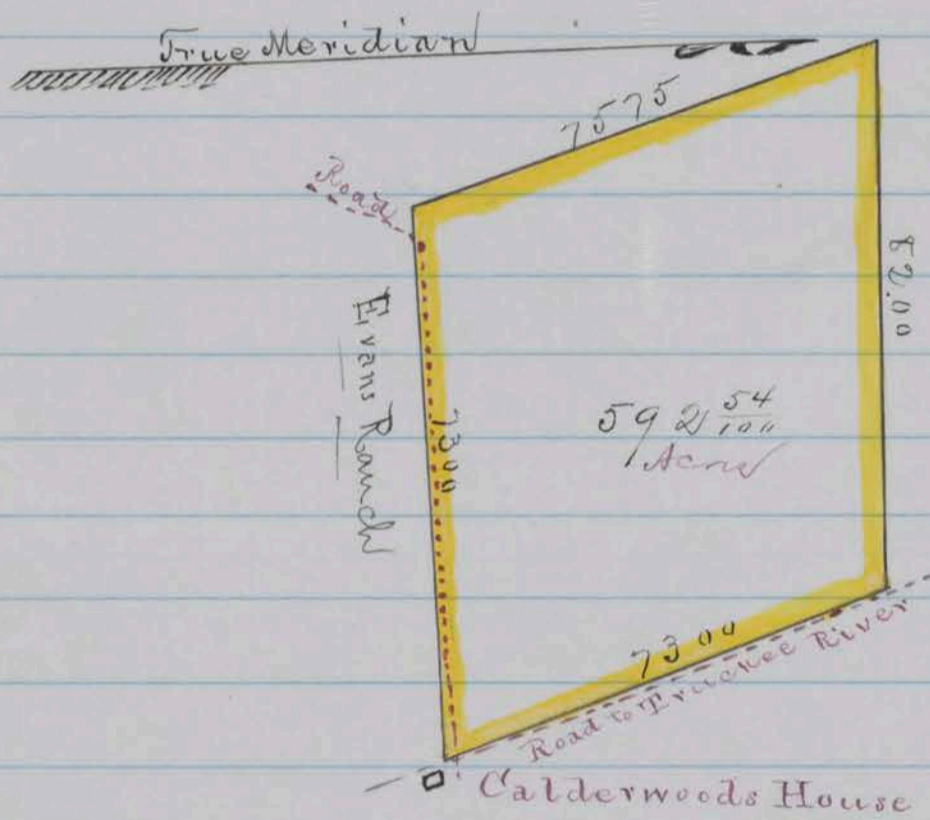 True Meridian
7575
Road
82.00
Evans Ranch
7300
592 54/100
Acres
7300
Road to Truckee River
Calderwoods House